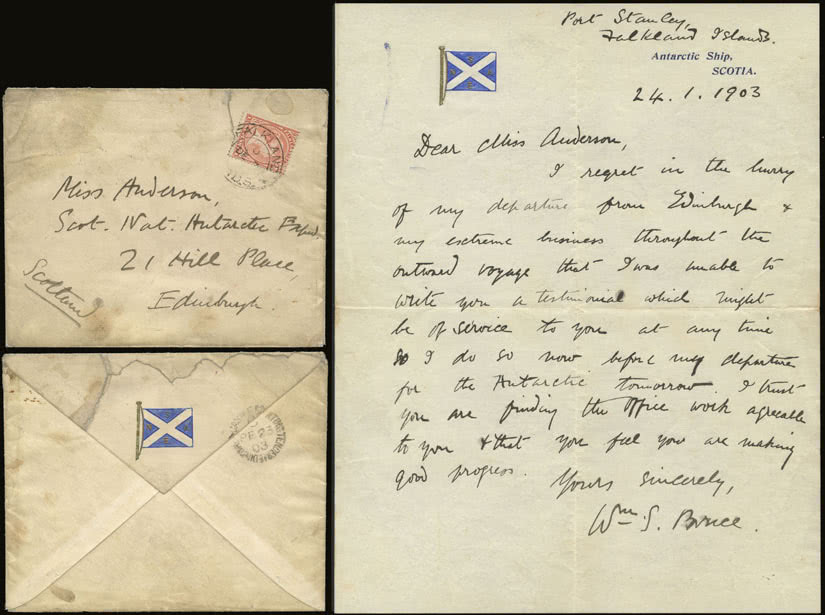 Miss Anderson,
Scot. Nat. Antarctic Exped.
21 Hill Place,
Edinburgh.
Scotland
FALKLAND
FE 23
03
Port Stanley,
Falkland Islands.
Antarctic Ship,
SCOTIA.
24.1.1903
Dear Miss Anderson,
I regret in the hurry
of my departure from Edinburgh &
my extreme business throughout the
outward voyage that I was unable to
write you a testimonial which might
be of service to you at any time
so I do so now before my departure
for the Antarctic tomorrow. I trust
you are finding the office work agreeable
to you & that you feel you are making
good progress.
Yours sincerely,
Wm S. Bruce.